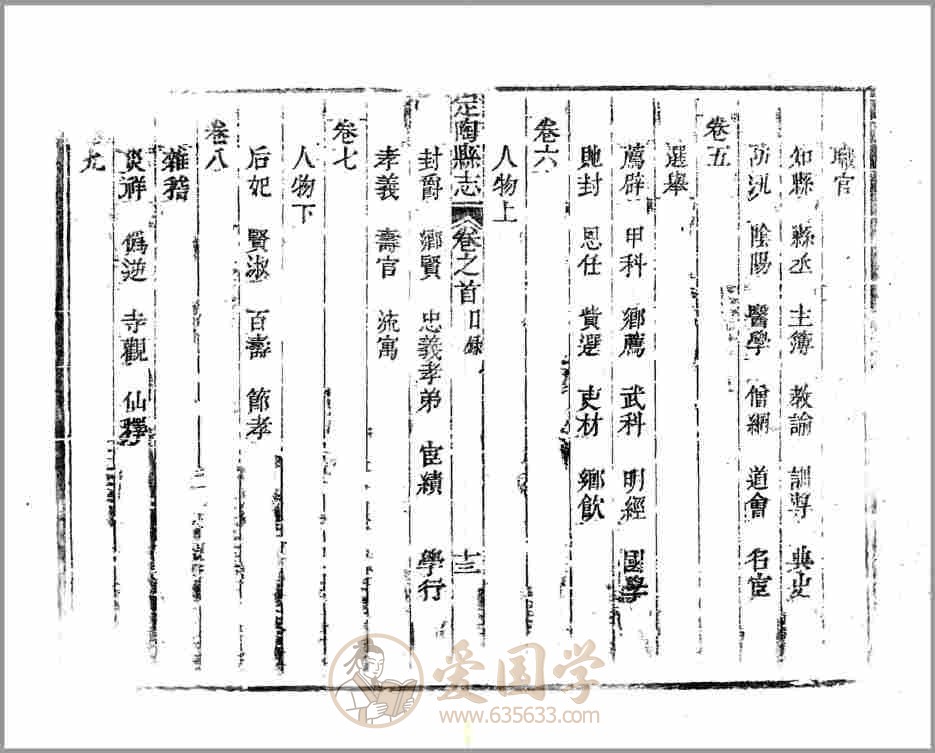 職官
知縣 縣丞 主簿 教諭 訓導 典史
防汛 陰陽 醫學 僧綱 道會 名宦
卷五
選舉
薦辟 甲科 鄉薦 武科 明經 國學
貤封 恩任 貲選 吏材 鄉飲
卷六
人物上
定陶縣志 卷之首 目錄 十三
封爵 鄉賢 忠義孝弟 宦績 學行
孝義 壽官 流寓
卷七
人物下
后妃 賢淑 百壽 節孝
卷八
雜稽
災祥 僞逆 寺觀 仙釋
九
爱国学
www.635633.com